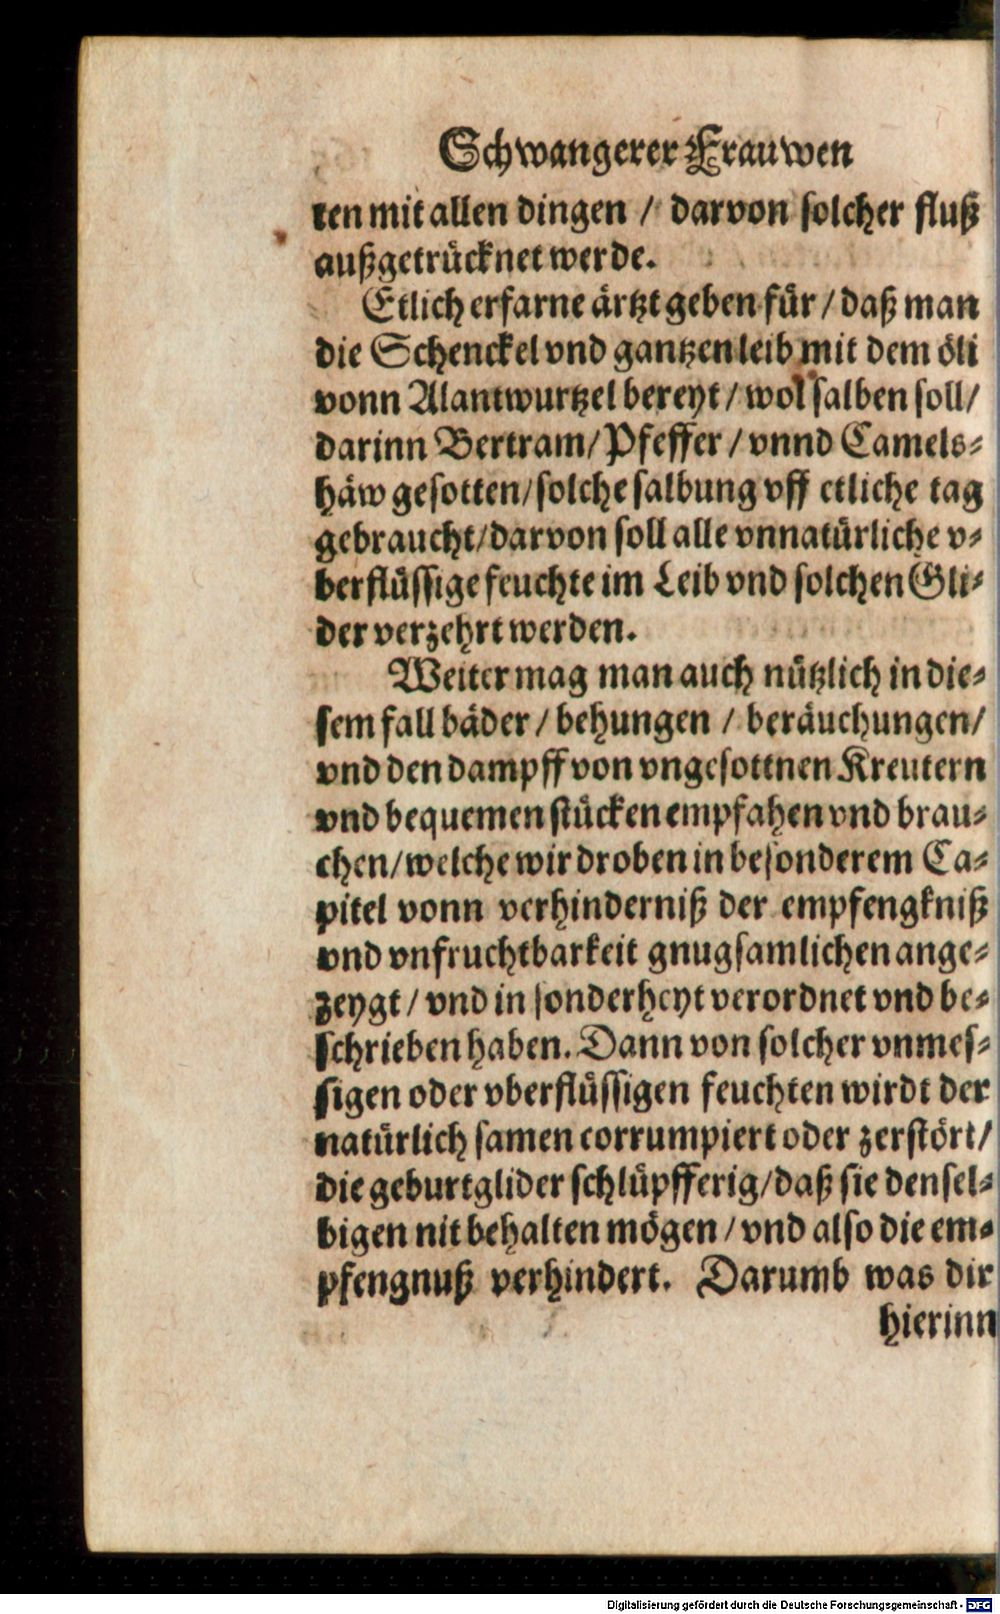 Schwangerer Frauwen
ten mit allen dingen / darvon solcher fluß
außgetrücknet werde.
Etlich erfarne ärtzt geben für / daß man
die Schenckel vnd gantzen leib mit dem öli
vonn Alantwurtzel bereyt / wol salben soll /
darinn Bertram / Pfeffer / vnnd Camels⸗
häw gesotten / solche salbung vff etliche tag
gebraucht / darvon soll alle vnnatürliche v⸗
berflüssige feuchte im Leib vnd solchen Gli⸗
der verzehrt werden.
Weiter mag man auch nützlich in die⸗
sem fall bäder / behungen / beräuchungen /
vnd den dampff von vngesottnen Kreutern
vnd bequemen stücken empfahen vnd brau⸗
chen / welche wir droben in besonderem Ca⸗
pitel vonn verhinderniß der empfengkniß
vnd vnfruchtbarkeit gnugsamlichen ange⸗
zeygt / vnd in sonderheyt verordnet vnd be⸗
schrieben haben. Dann von solcher vnmes⸗
sigen oder vberflüssigen feuchten wirdt der
natürlich samen corrumpiert oder zerstört /
die geburtglider schlüpfferig / daß sie densel⸗
bigen nit behalten mögen / vnd also die em⸗
pfengnuß verhindert. Darumb was dir
hierinn
Digitalisierung gefördert durch die Deutsche Forschungsgemeinschaft - DFG